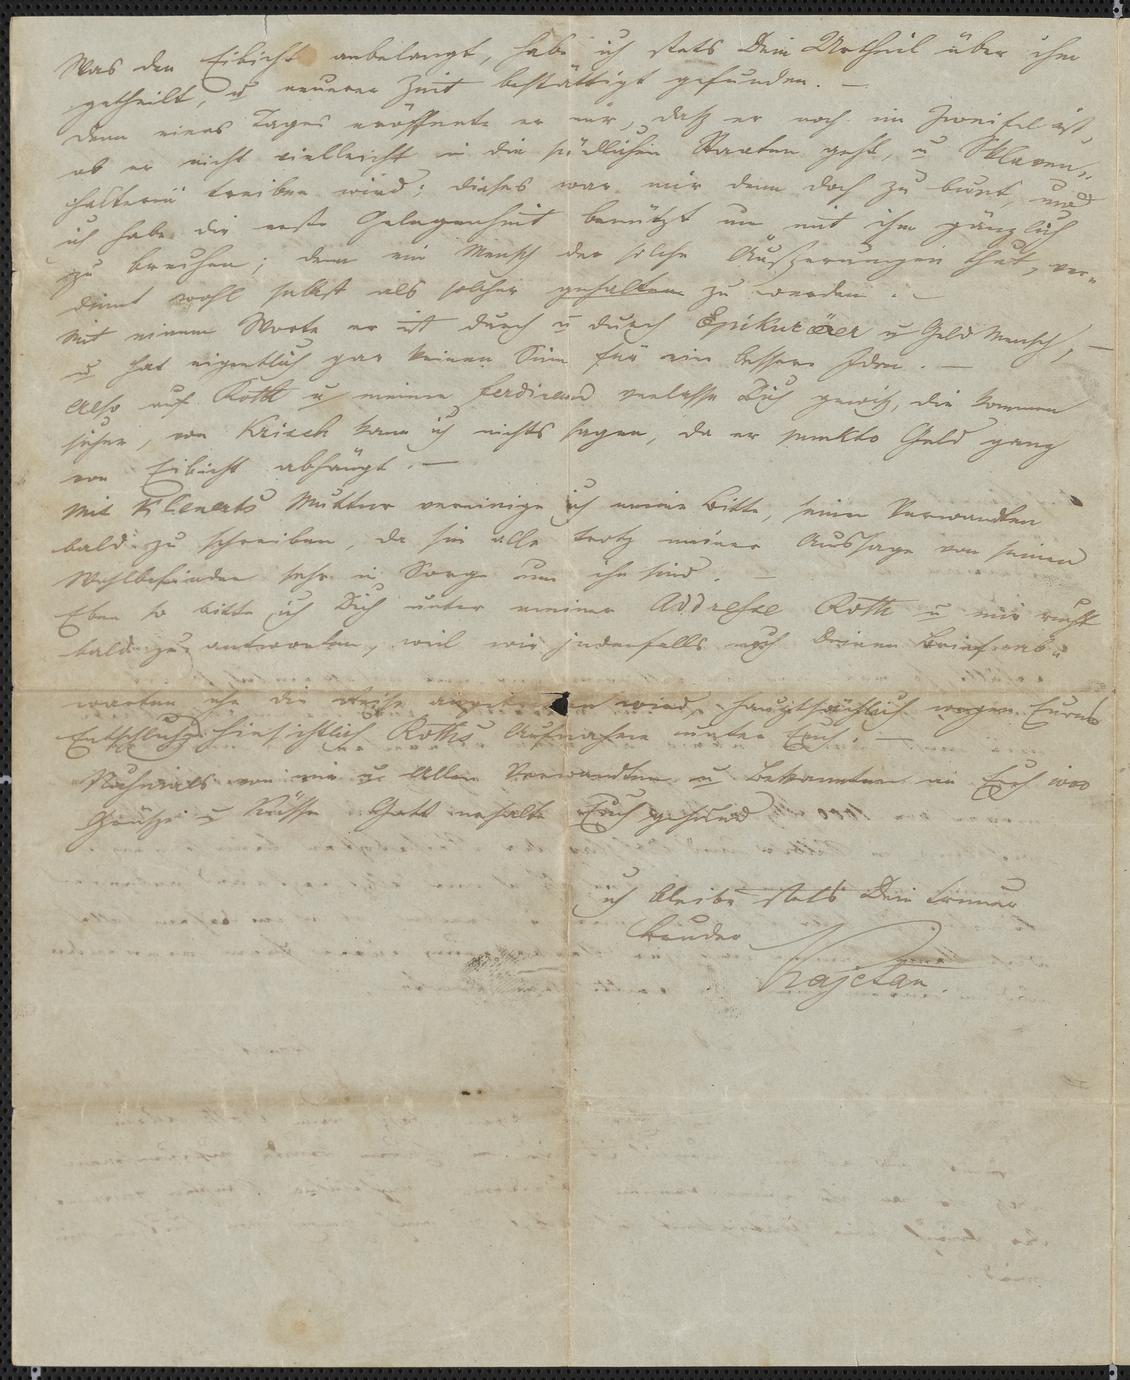 Was den Eibicht anbelangt, habe ich stets Dein Urtheil über ihn
getheilt, u neuerer Zeit bestättigt gefunden. —
denn eines Tages eröffnete er mir, daß er noch im Zweifel ist,
ob er nicht vielleicht in die südlichen Staaten geht, u Sklaven-
halterei treiben wird; dieses war mir denn doch zu bunt, und
ich habe die erste Gelegenheit benützt um mit ihm gänzlich
zu brechen; denn ein Mensch der solche Äußerungen thut, ver-
dient wohl selbst als solcher gehalten zu werden. —
Mit einem Worte er ist durch u durch Epikuräer u Geld Mensch, —
u hat eigentlich gar keinen Sinn für eine bessere Idee. —
Also auf Roth u meinen Ferdinand verlasse Dich gewiß, die kommen
sicher, von Krisch kann ich nichts sagen, da er punkto Geld ganz
von Eibicht abhängt. —
Mit Klenerts Mutter vereinige ich meine Bitte, seinen Verwandten
bald zu schreiben, da sie alle trotz meiner Aussage von seinem
Wohlbefinden sehr in Sorge um ihn sind. —
Eben so bitte ich Dich unter meiner Addresse Roth u mir recht
bald zu antworten, weil wir jedenfalls noch Deinen Brief ab-
warten ehe die Reise wird, hauptsächlich wegen Eures
Entschlußes hinsichtlich Roths Aufnahme unter Euch. —
Nochmals von mir u Allen Verwandten u Bekannten an Euch 1000
Grüße u Küsse Gott erhalte Euch gesund
ich bleibe stets Dein treuer
Bruder
Kajetan.